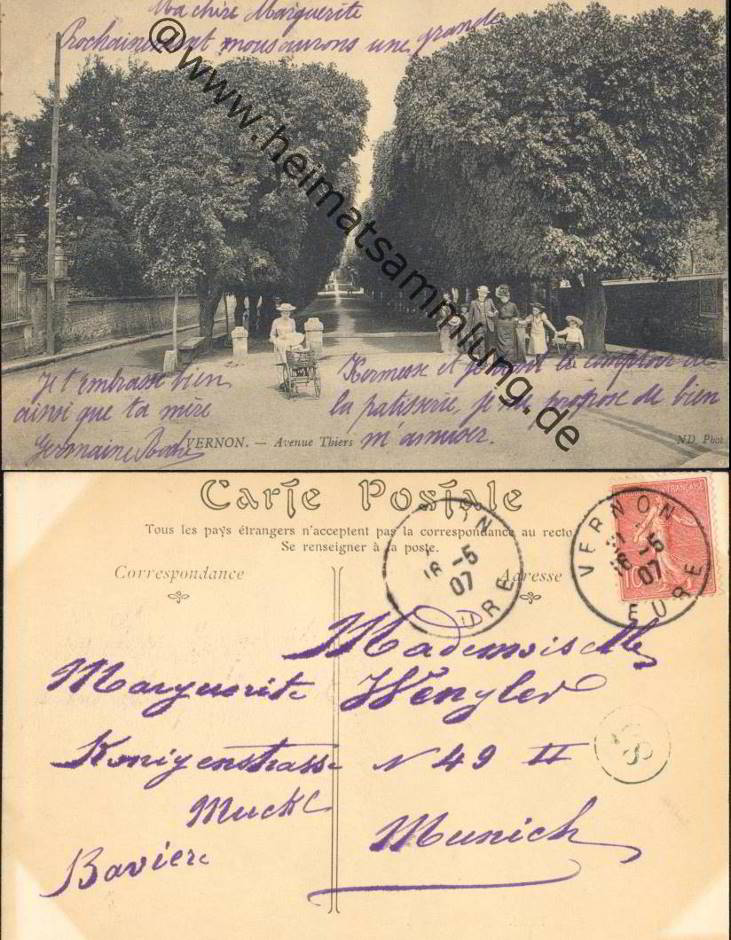 Ma chère Marguerite
Prochainement nous aurons une grande
@www.heimatsammlung.de
Kermesse et je serai au comptoir de
la patisserie, je me propose de bien
m'amuser.
Je t'embrasse bien
ainsi que ta mère
Germaine
VERNON. — Avenue Thiers
ND Phot
Carte Postale
Tous les pays étrangers n'acceptent pas la correspondance au recto
Se renseigner à la poste.
Correspondance
Adresse
VERNON
18 -5
07
EURE
18 -5
07
Mademoiselle
Marguerite Wengler
Konigenstrasse N 49 II
Munich
Bavière